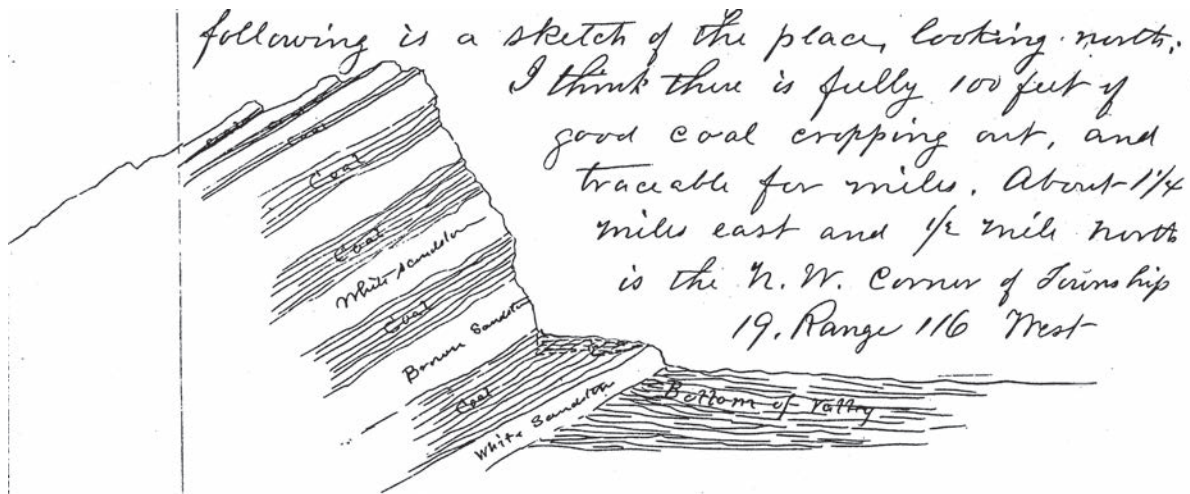 following is a sketch of the place, looking north.
I think there is fully 100 feet of
good coal cropping out, and
traceable for miles. About 1 1/4
miles east and 1/2 mile north
is the N. W. Corner of Township
19. Range 116 West
Coal
Coal
Coal
White Sandston
Coal
Brown Sandston
Coal
White Sandston
Bottom of Valley